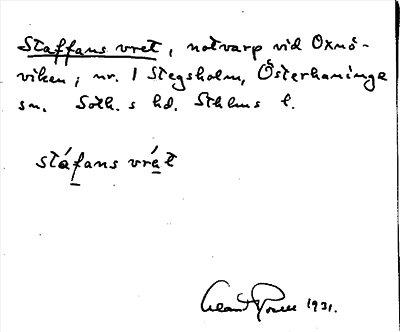 Staffans vret, notvarp vid Oxnö-
viken, nr. 1 Stegsholm, Österhaninge
sn. Soth. s hd. Sthlms l.
stáfans vrát
1931.